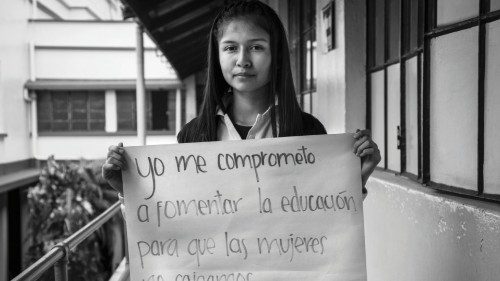 yo me comprometo
a fomentar la educación
para que las mujeres